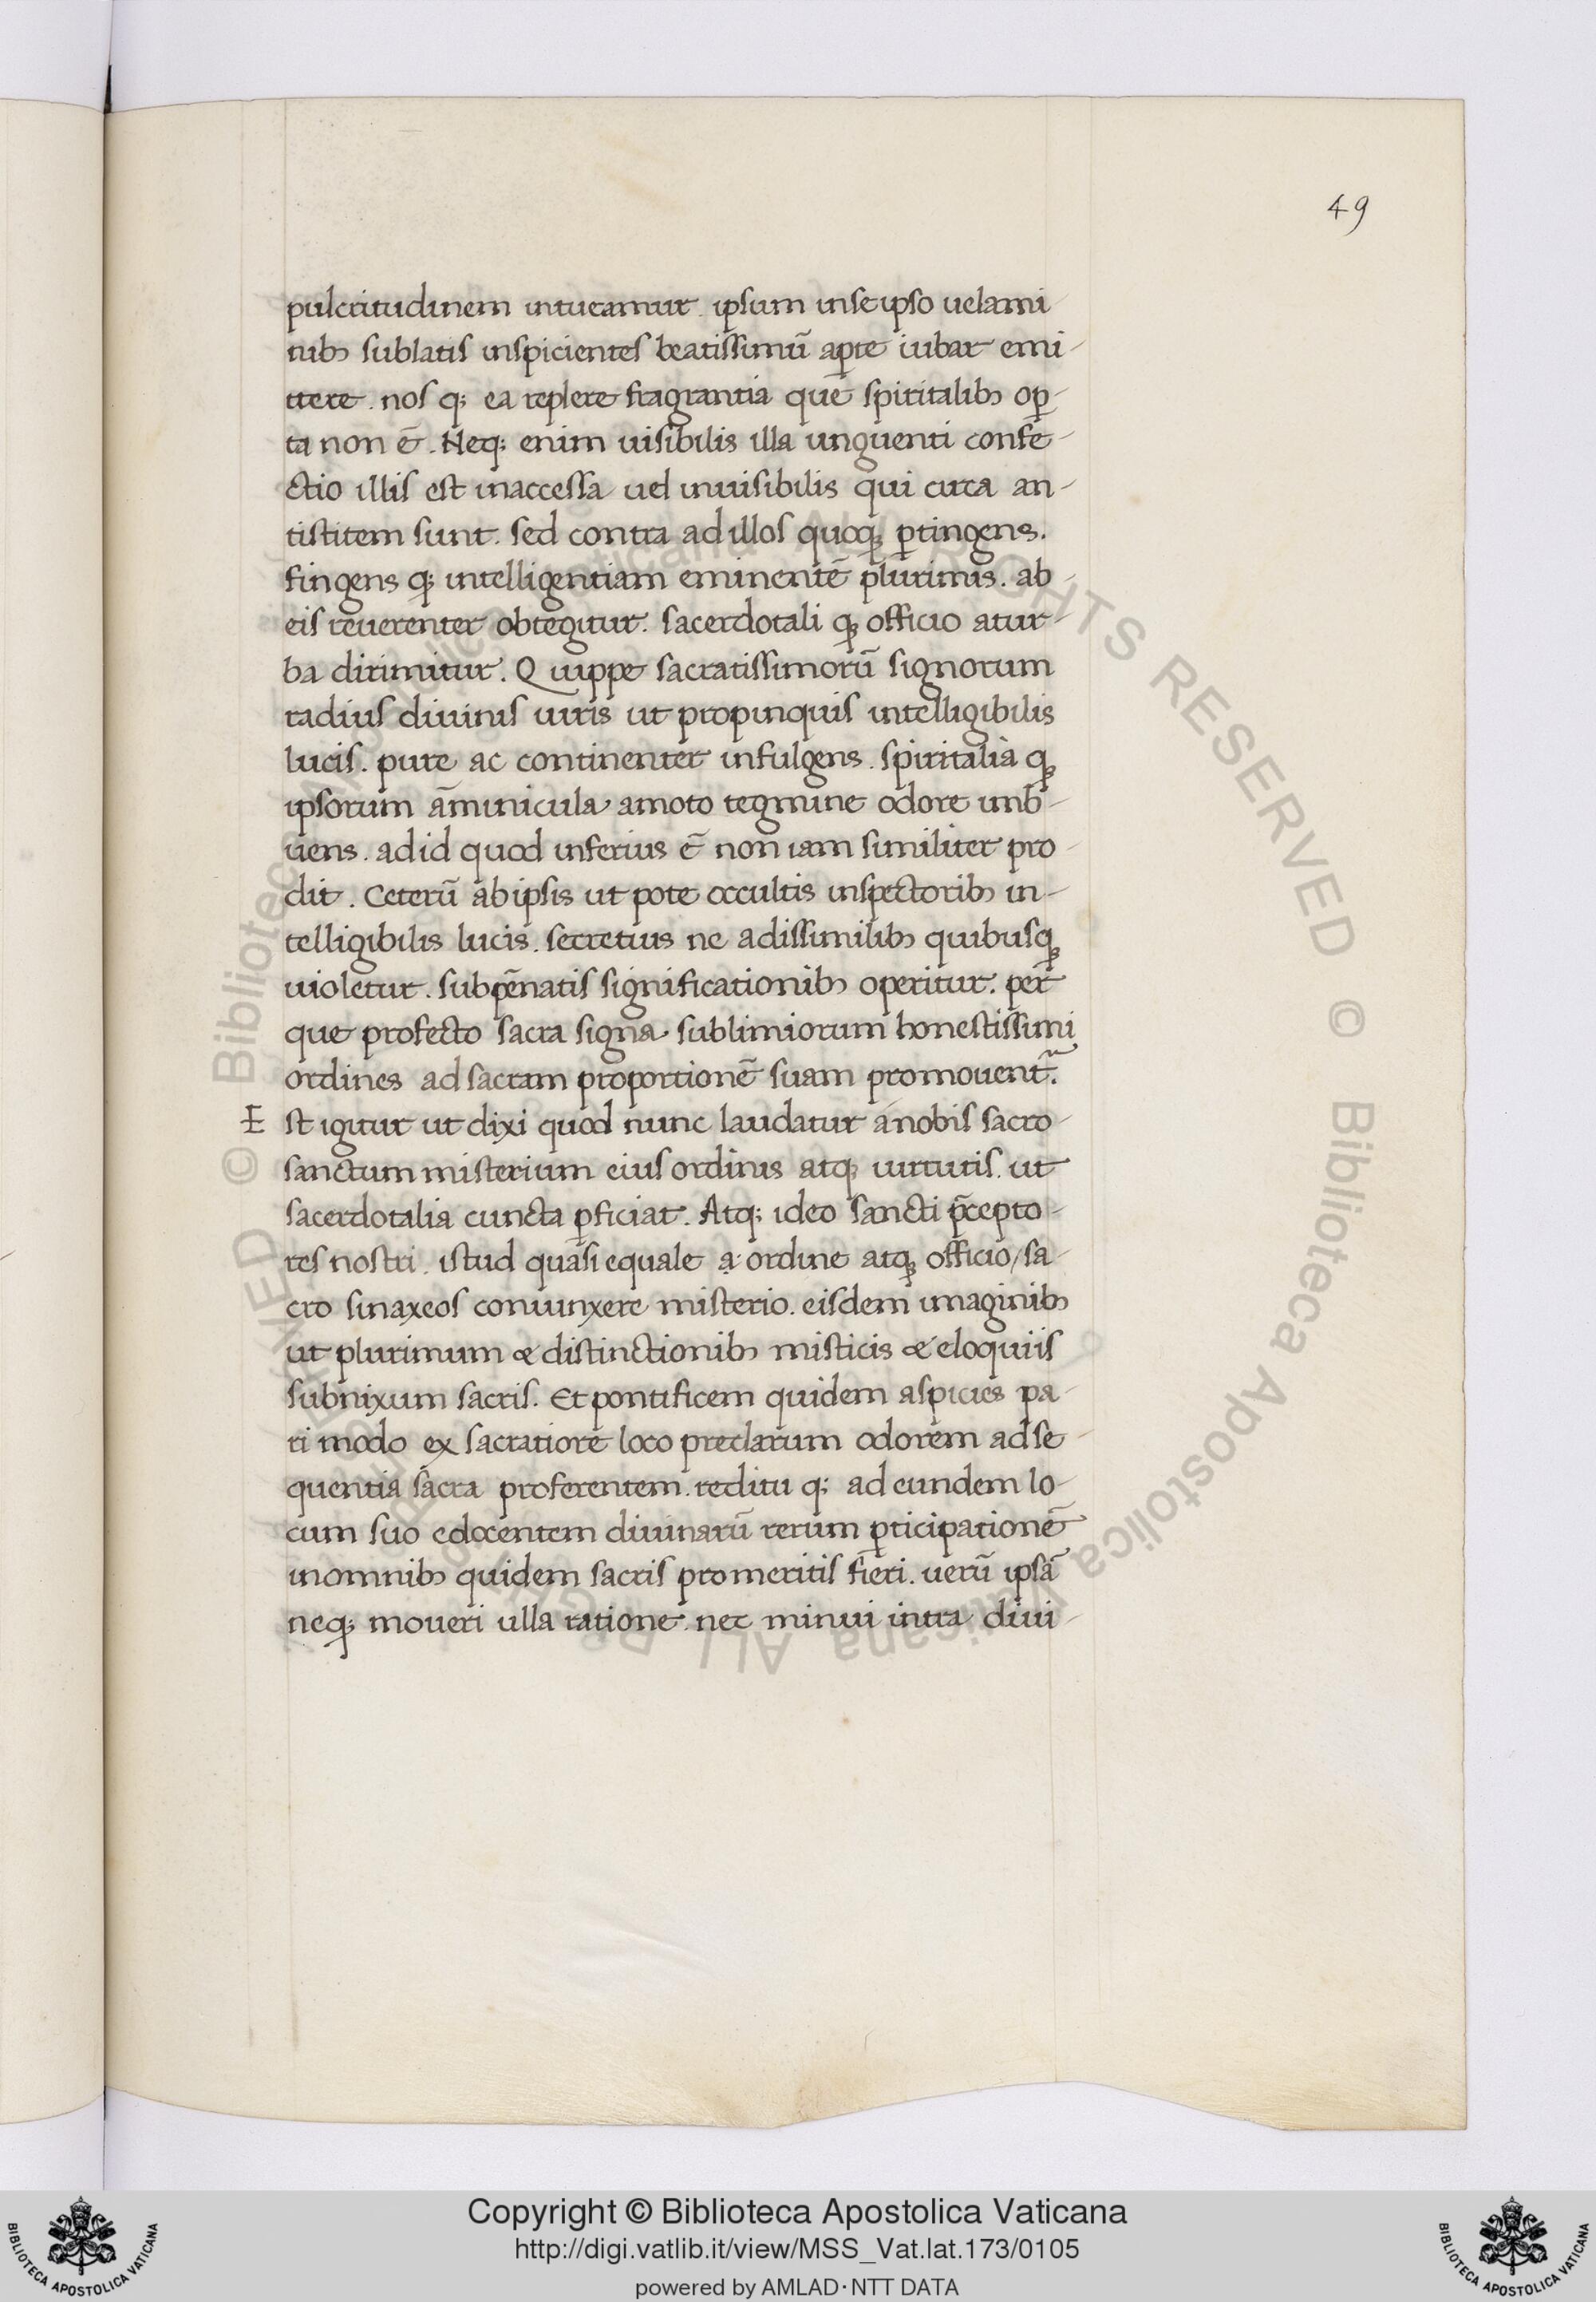 49
pulcritudinem intueamur. ipsum inseipso uelami-
nibꝫ sublatis inspicientes beatissimū aꝑte iubar emi-
ttere. nos q; ea replere fragrantia quē spiritalibꝫ oꝑ-
ta non ē. Neq; enim uisibilis illa unguenti confe-
ctio illis est inaccessa uel inuisibilis qui circa an-
tistitem sunt. sed contra ad illos quoq; ꝑtingens.
fingens q; intelligentiam eminentē plurimis. ab-
eis reuerenter obtegitur. sacerdotali q; officio atur-
ba dirimitur. Quippe sacratissimorū signorum
radius diuinis uiris ut propinquis intelligibilis
lucis. pure ac continenter infulgens. spiritalia q;
ipsorum āminicula amoto tegmine odore imb-
uens. ad id quod inferius ē non iam similiter pro-
dit. Ceterū ab ipsis ut pote occultis inspectoribꝫ in-
telligibilis lucis. secretius ne adissimilibꝫ quibusq;
uioletur. subpēnatis significationibꝫ operitur. per
que profecto sacra signa sublimiorum honestissimi
ordines ad sacram proportionē suam promouent̄.
Est igitur ut dixi quod nunc laudatur anobis sacro-
sanctum misterium eius ordinis atq; uirtutis. ut
sacerdotalia cuncta ꝑficiat. Atq; ideo sancti p̄cepto-
res nostri. istud quasi equale a ordine atq; officio/sa-
cro sinaxeos coniunxere misterio. eisdem imaginibꝫ
ut plurimum & distinctionibꝫ misticis & eloquiis
subnixum sacris. Et pontificem quidem aspicies pa-
ri modo ex sacratiore loco preclarum odorem adse-
quentia sacra proferentem. reditu q; ad eundem lo-
cum suo edocentem diuinarū rerum ꝑticipationē
inomnibꝫ quidem sacris promeritis fieri. uerū ipsā
neq; moueri ulla ratione. nec minui intra diui-
© Biblioteca Apostolica Vaticana ALL RIGHTS RESERVED © Biblioteca Apostolica Vaticana ALL RIGHTS RESERVED
Copyright © Biblioteca Apostolica Vaticana
http://digi.vatlib.it/view/MSS_Vat.lat.173/0105
powered by AMLAD·NTT DATA
BIBLIOTECA APOSTOLICA VATICANA
BIBLIOTECA APOSTOLICA VATICANA